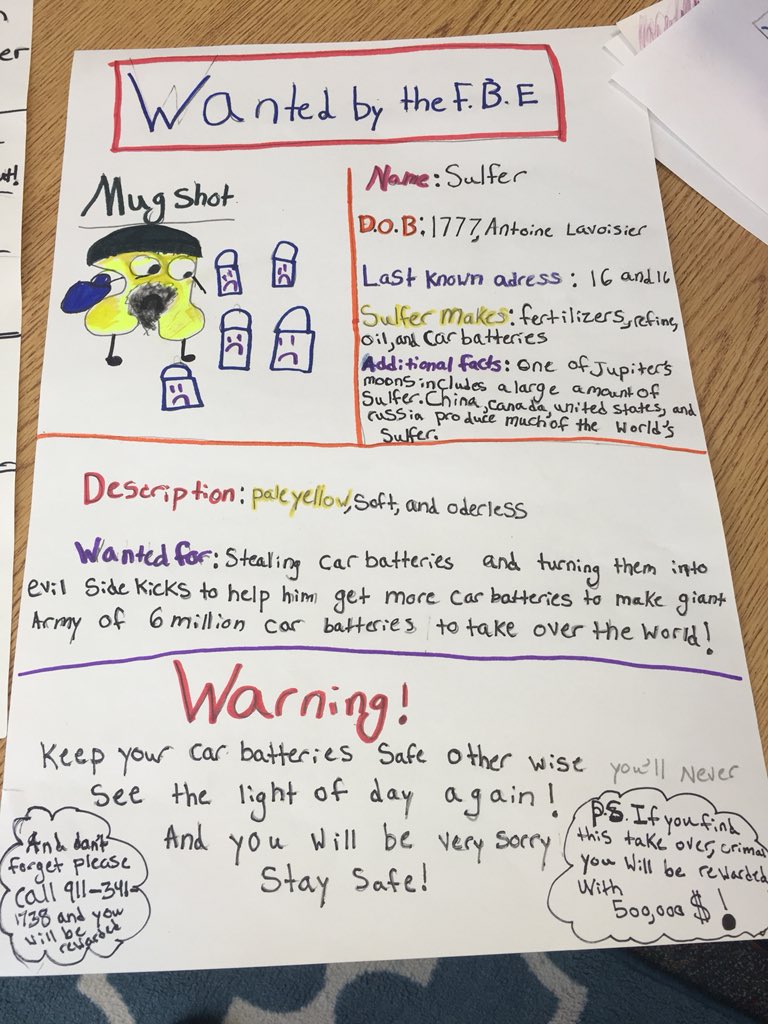 Wanted by the F.B.E
Mug shot
Name: Sulfer
D.O.B: 1777, Antoine Lavoisier
Last known adress: 16 and 16
Sulfer makes: fertilizers, refine,
oil, and car batteries
Additional facts: One of Jupiter's
moons includes a large amount of
Sulfer. China, Canada, united states, and
russia produce much of the world's
Sulfer.
Description: pale yellow, soft, and oderless
Wanted for: Stealing car batteries and turning them into
evil side kicks to help him get more car batteries to make giant
Army of 6 million car batteries to take over the world!
Warning!
Keep your car batteries safe other wise you'll never
see the light of day again!
And you will be very sorry
Stay Safe!
And don't
forget please
call 911-341-
1738 and you
will be
rewarded
P.S. If you find
this take over, crimal
you will be rewarded
with
500,000 $!
er
ut!